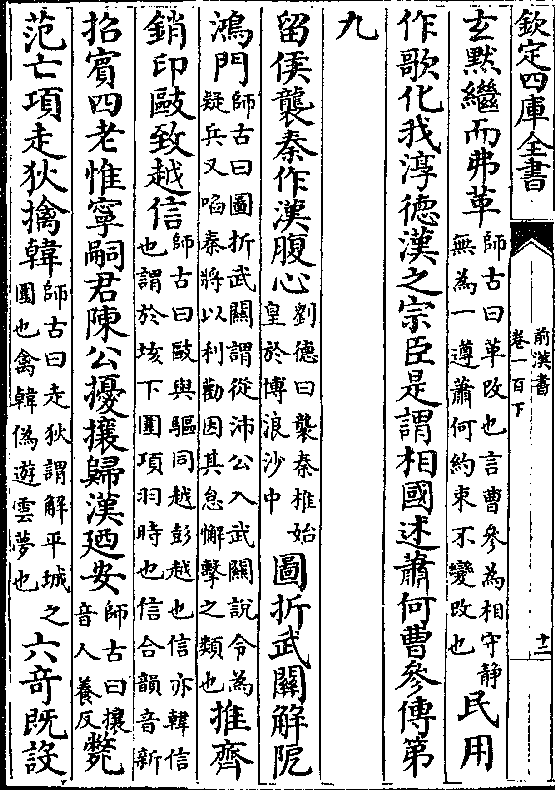 欽定四庫全書
前漢書
卷一百下
十二
玄黙繼而弗革師古曰革改也言曹參為相守静無為一遵蕭何約束不變改也民用
作歌化我淳德漢之宗臣是謂相國述蕭何曹參傳第
九
留侯襲秦作漢腹心劉德曰襲秦椎始皇於博浪沙中圖折武關解阨
鴻門師古曰圖折武關謂從沛公入武關說令為疑兵又啗秦將以利勸因其怠懈擊之類也推齊
銷印敺致越信師古曰敺與驅同越彭越也信亦韓信也謂於垓下圍項羽時也信合韻音新
招賔四老惟寧嗣君陳公擾攘歸漢廼安師古曰攘音人養反斃
范亡項走狄擒韓師古曰走狄謂解平城之圍也禽韓偽遊雲夢也六竒既設